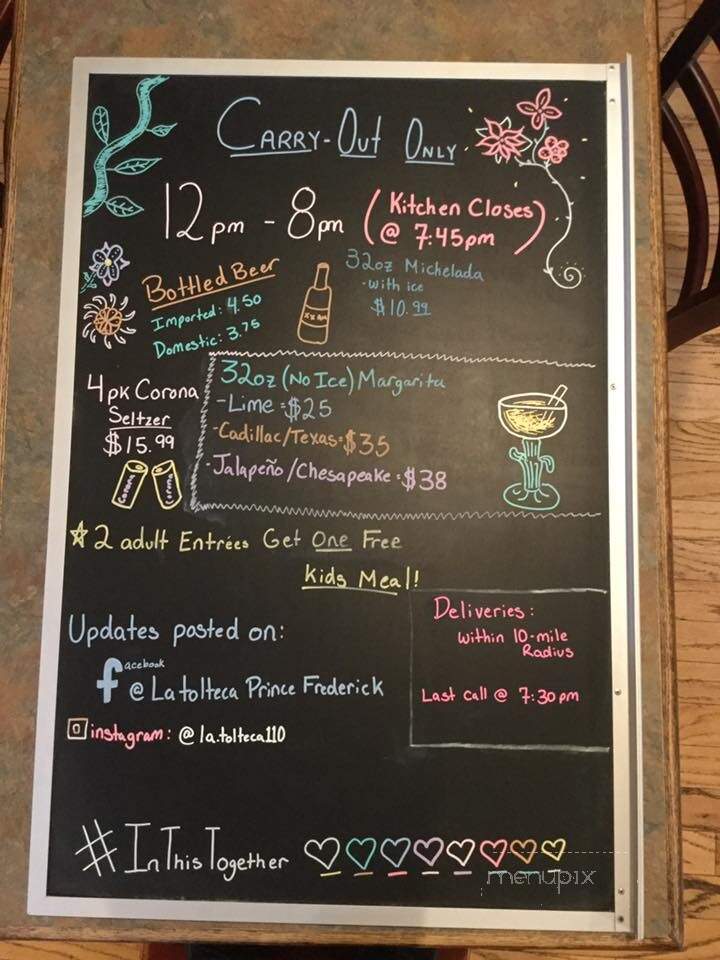 Carry-Out Only
12pm - 8pm (Kitchen Closes @ 7:45pm)
Bottled Beer
Imported: 4.50
Domestic: 3.75
XX
32oz Michelada
-with ice
$10.99
4pk Corona
Seltzer
$15.99
Corona
Corona
32oz (No Ice) Margarita
-Lime =$25
-Cadillac/Texas=$35
-Jalapeño/Chesapeake=$38
2 adult Entrées Get One Free
Kids Meal!
Updates posted on:
facebook
@ La tolteca Prince Frederick
instagram: @la.tolteca110
Deliveries:
within 10-mile
Radius
Last call @ 7:30pm
#InThisTogether
menupix